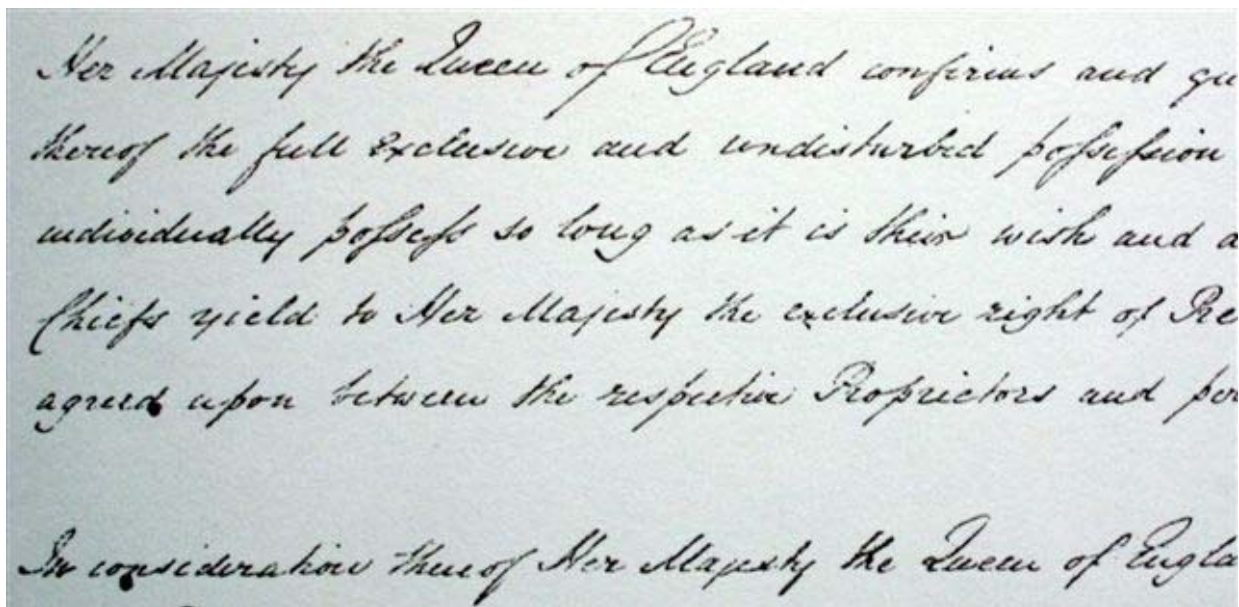 Her Majesty the Queen of England confirms and gu
thereof the full exclusive and undisturbed possession
individually possess so long as it is their wish and d
Chiefs yield to Her Majesty the exclusive right of Pre
agreed upon between the respective Proprietors and per
In consideration thereof Her Majesty the Queen of Engla